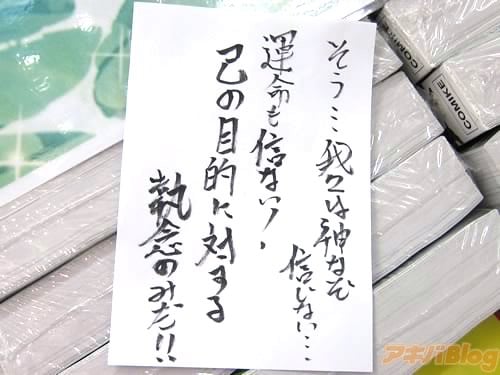 そう…我々は神など
信じない…
運命も信ない!
己の目的に対する
執念のみだ!!
COMIKE
COMIKE
アキバBlog